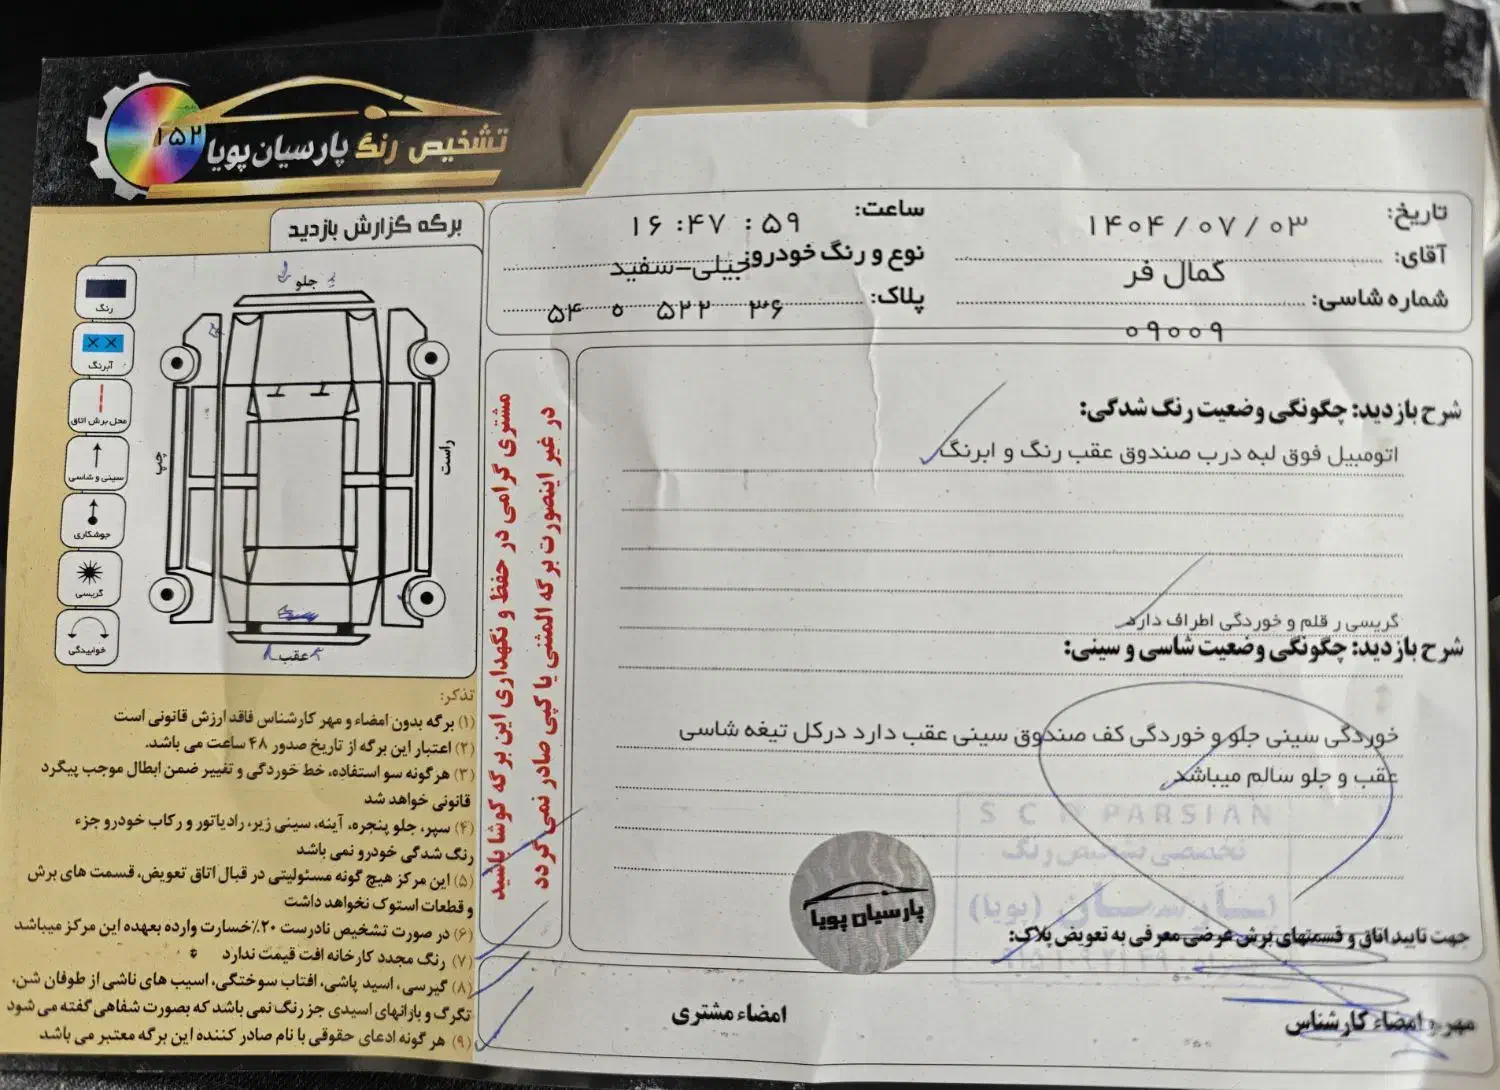 تشخیص رنگ پارسیان پویا
۱۵۲
تاریخ: ۱۴۰۴/۰۷/۰۳
ساعت: ۱۶:۴۷:۵۹
آقای: کمال فر
نوع و رنگ خودرو: جیلی-سفید
شماره شاسی: ۰۹۰۰۹
پلاک: ۳۶ ۵۲۲ ۵ ۵۴
برگه گزارش بازدید
جلو
چپ
راست
عقب
رنگ
آبرنگ
محل برش اتاق
سینی و شاسی
جوشکاری
گریسی
خوابیدگی
مشتری گرامی در حفظ و نگهداری این برگه کوشا باشید
در غیر اینصورت برگه المثنی یا کپی صادر نمی گردد
شرح بازدید: چگونگی وضعیت رنگ شدگی:
اتومبیل فوق لبه درب صندوق عقب رنگ و ابرنگ
گریسی ر قلم و خوردگی اطراف دارد
شرح بازدید: چگونگی وضعیت شاسی و سینی:
خوردگی سینی جلو و خوردگی کف صندوق سینی عقب دارد درکل تیغه شاسی
عقب و جلو سالم میباشد
S C R PARSIAN
تخصصی تشخیص رنگ
پارسیان (پویا)
پارسیان پویا
جهت تایید اتاق و قسمتهای برش عرضی معرفی به تعویض پلاک:
مهر و امضاء کارشناس
امضاء مشتری
تذکر:
۱) برگه بدون امضاء و مهر کارشناس فاقد ارزش قانونی است
۲) اعتبار این برگه از تاریخ صدور ۴۸ ساعت می باشد.
۳) هرگونه سو استفاده، خط خوردگی و تغییر ضمن ابطال موجب پیگرد
قانونی خواهد شد
۴) سپر، جلو پنجره، آینه، سینی زیر، رادیاتور و رکاب خودرو جزء
رنگ شدگی خودرو نمی باشد
۵) این مرکز هیچ گونه مسئولیتی در قبال اتاق تعویض، قسمت های برش
و قطعات استوک نخواهد داشت
۶) در صورت تشخیص نادرست ۲۰٪ خسارت وارده بعهده این مرکز میباشد
۷) رنگ مجدد کارخانه افت قیمت ندارد
۸) گیرسی، اسید پاشی، افتاب سوختگی، اسیب های ناشی از طوفان شن،
تگرگ و بارانهای اسیدی جز رنگ نمی باشد که بصورت شفاهی گفته می شود
۹) هر گونه ادعای حقوقی با نام صادر کننده این برگه معتبر می باشد